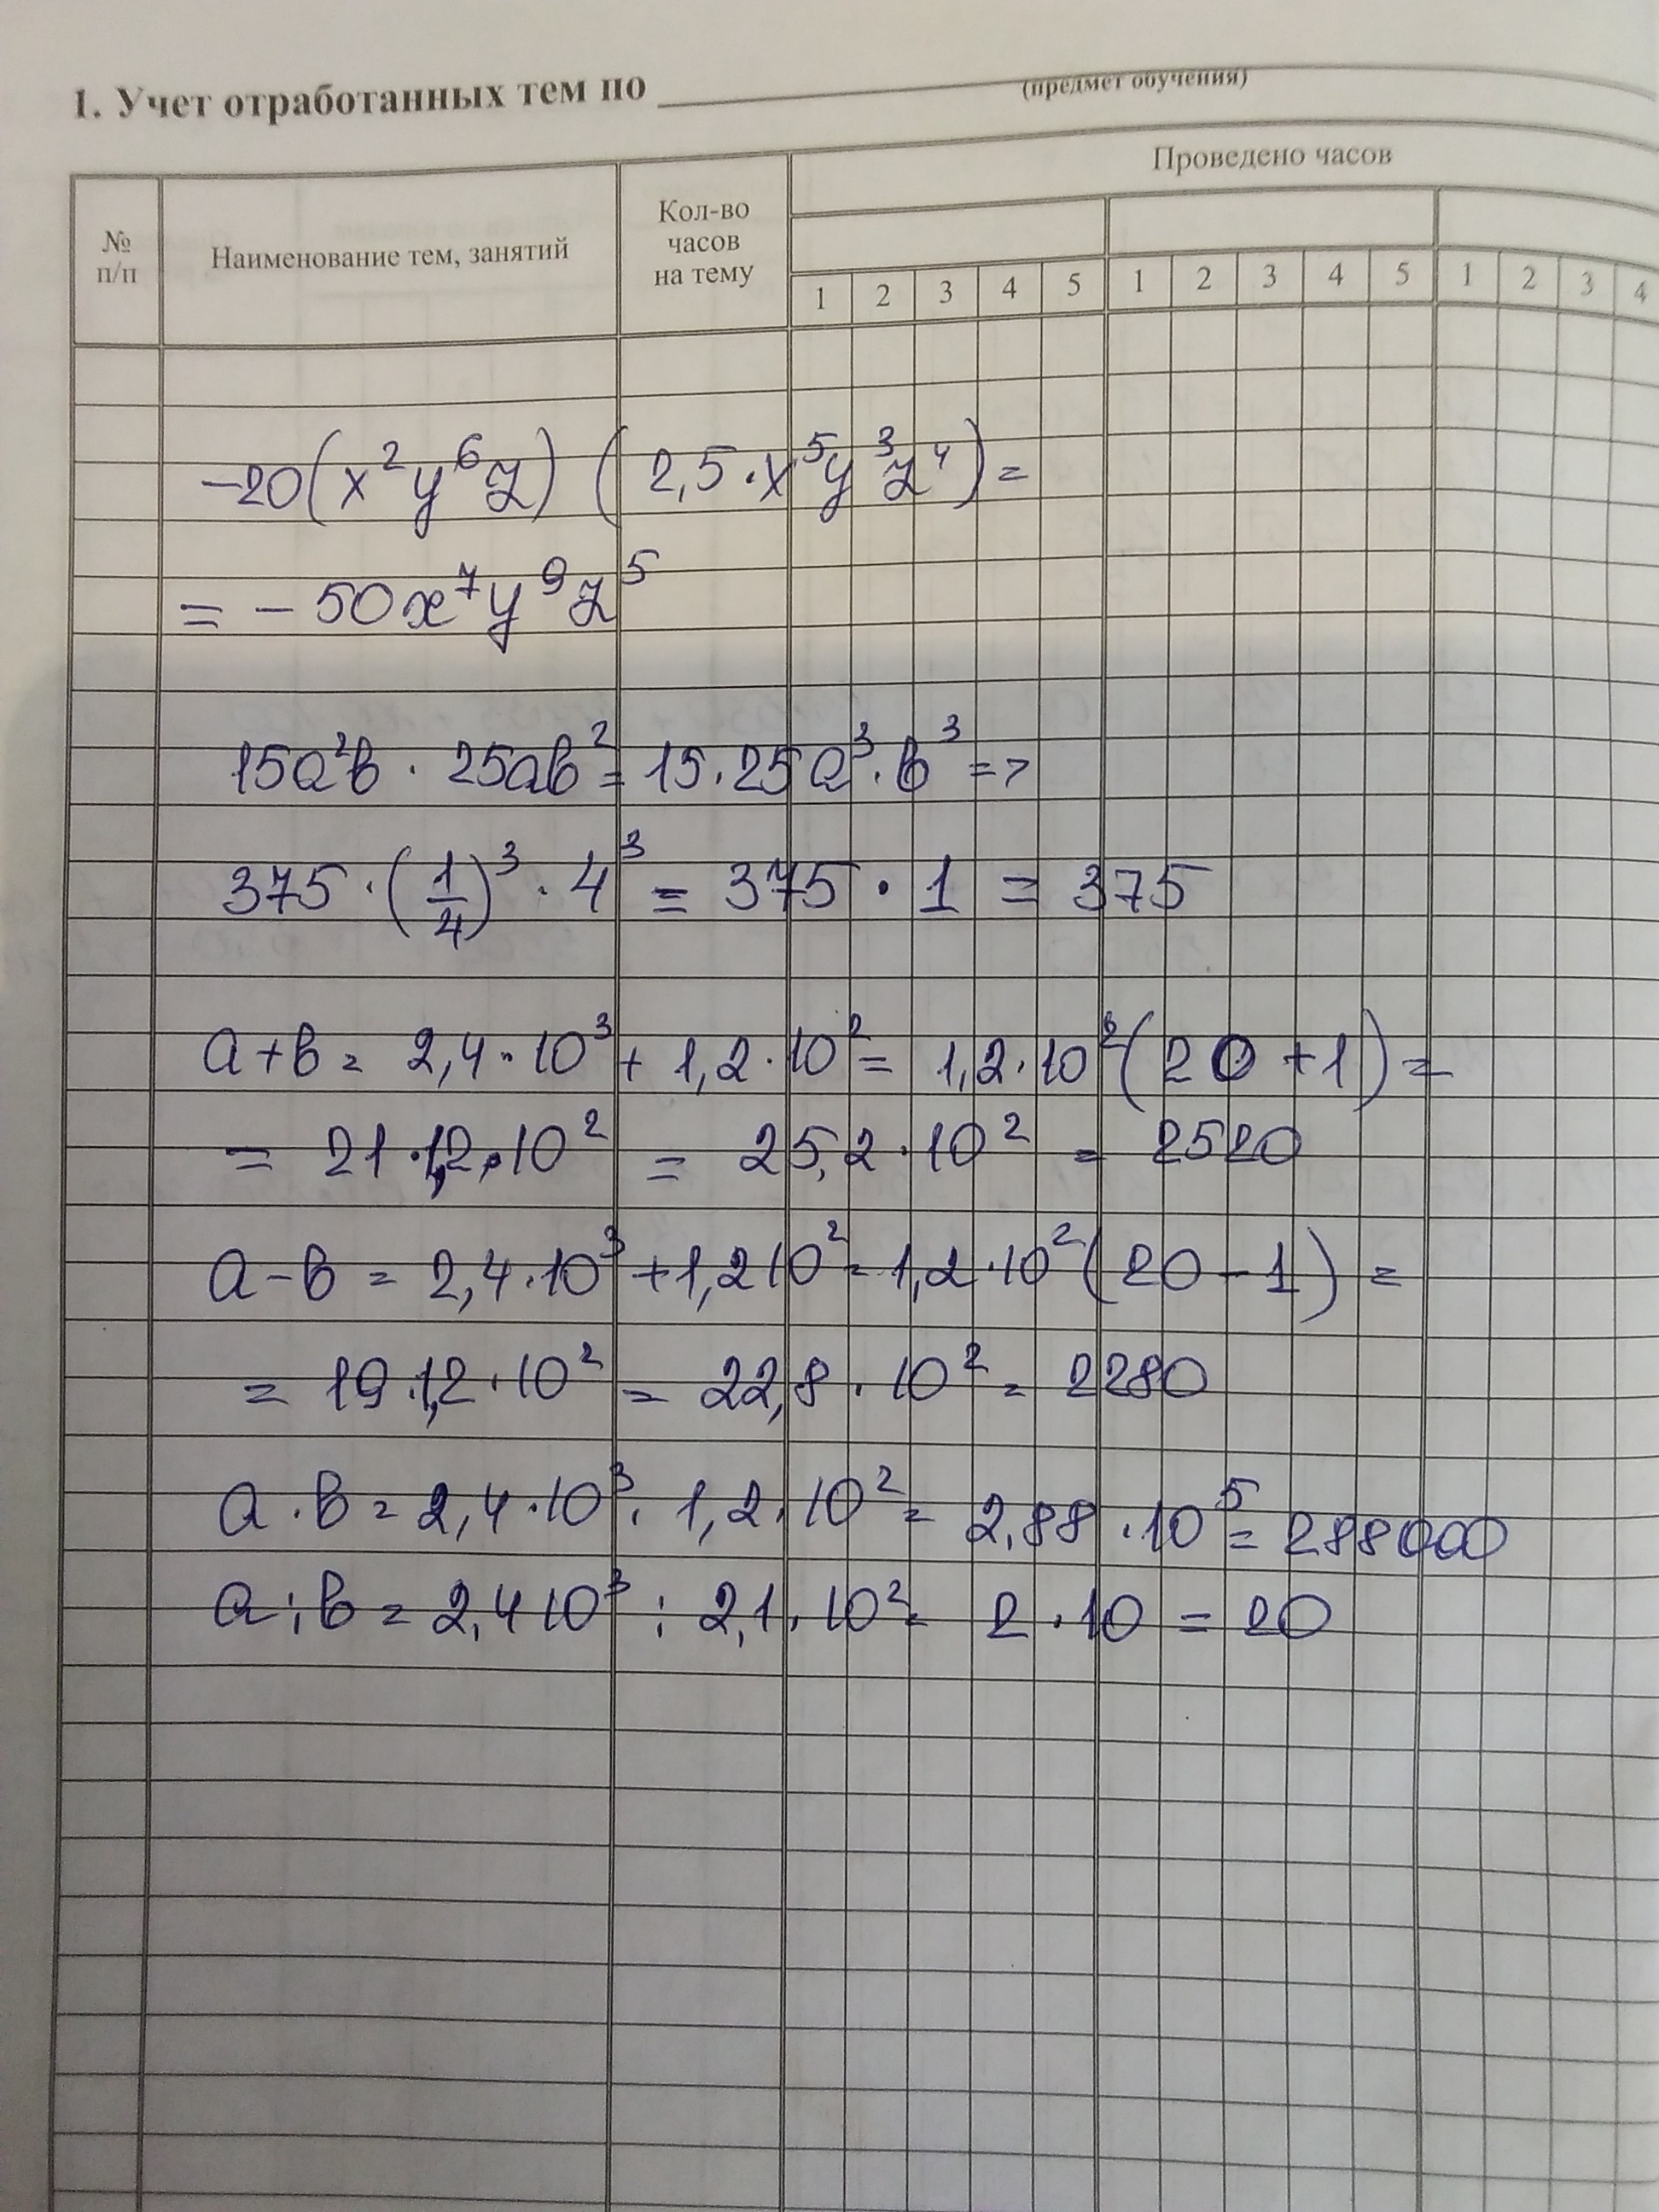 1. Учет отработанных тем по
(предмет обучения)
№ п/п
Наименование тем, занятий
Кол-во часов на тему
Проведено часов
1 2 3 4 5 1 2 3 4 5 1 2 3 4
-20(x²y⁶z)(2,5·x⁵y³z⁴)=
= -50x⁷y⁹z⁵
15a²b · 25ab² = 15·25a³·b³ =>
375·(1/4)³·4³ = 375·1 = 375
a+b = 2,4·10³ + 1,2·10² = 1,2·10²(20+1) =
= 21·1,2·10² = 25,2·10² = 2520
a-b = 2,4·10³ + 1,2 10² = 1,2·10²(20-1) =
= 19·1,2·10² = 22,8·10² = 2280
a·b = 2,4·10³·1,2·10² = 2,88·10⁵ = 288000
a:b = 2,4 10³ : 2,1·10² = 2·10 = 20